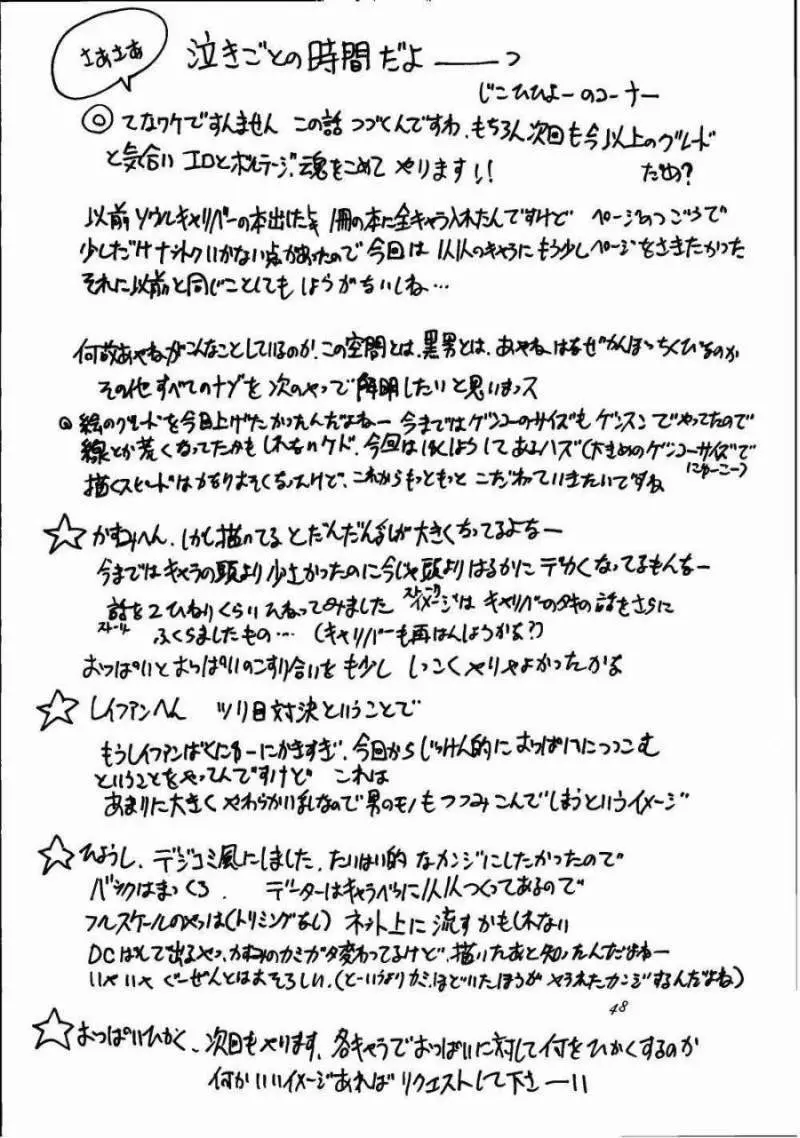 さあさあ
泣きごとの時間だよ――っ
じこひひょーのコーナー
◎ てなワケですんません この話 つづくんですわ、もちろん次回も今以上のグレード
と気合い エロとボルテージ、魂をこめて やります!!
だめ?
以前ソウルキャリバーの本出したとき 1冊の本に全キャラ入れたんですけど ページのつごうで
少しだけナットクいかない点があったので今回は 1人1人のキャラにもう少しページをさきたかった
それに以前と同じことしても しょうがないしね…
何故あやねがこんなことしているのか、この空間とは、黒男とは、あやねはなぜ
その他すべてのナゾを次のやつで解明したいと思いまっス
◎ 絵のグレードを今回上げたかったんだよねー 今まではゲンコーのサイズもゲンスンでやってたので
線とか荒くなってたかもしれないケド、今回は してあるハズ(大きめのゲンコーサイズで
描くスピードはかなりおそくなったけど、これからもっともっと こだわっていきたいですね
☆ かすみへん、しかし描いてるとだんだん乳が大きくなってるよなー
今まではキャラの頭より小さかったのに今じゃ頭よりはるかにデカくなってるもんなー
話を2ひねりくらいひねってみました イメージは キャリバーのタキの話をさらに
ストーリー
ふくらましたもの…(キャリバーも再はんしようかな?)
おっぱいとおっぱいのこすり合いをも少し しつこくやりゃよかったかな
☆ レイファンへん ツリ目対決ということで
もうレイファンばくにゅーにかきすぎ、今回からじっけん的におっぱいにつつこむ
ということをやってんですけど これは
あまりに大きく やわらかい乳なので男のモノもつつみこんでしまうというイメージ
☆ ひょうし、デジコミ風にしました、たいはい的 なカンジにしたかったので
バックはまっくろ、 データーはキャラべつに1人1人つくってあるので
フルスケールのやつは(トリミングなし) ネット上に流すかもしれない
DC 出るやつ、かすみのカミガタ変わってるけど、描いたあと知ったんだよねー
いやいや ぐーぜんとはおそろしい、(とーいうよりカミ、ほどいたほうが やられたカンジするんだよね)
48
☆ おっぱいひかく、次回もやります、各キャラでおっぱいに対して何をひかくするのか
何かいいイメージあれば リクエストして下さーい